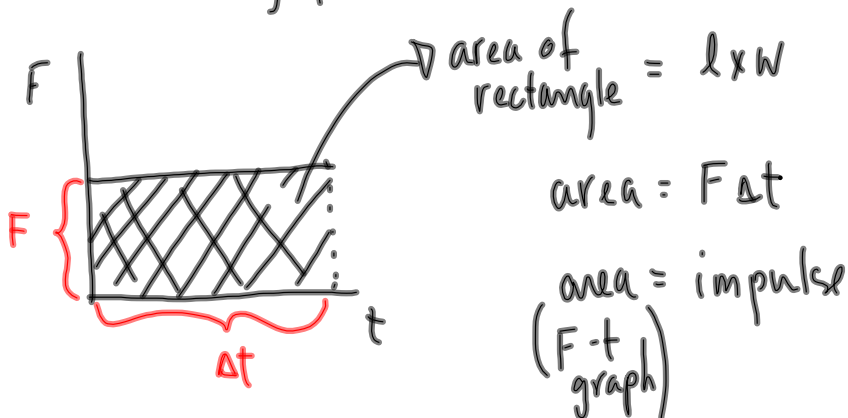 F
area of
rectangle = l x W
area = F Δt
F
area = impulse
(F-t
graph)
t
Δt